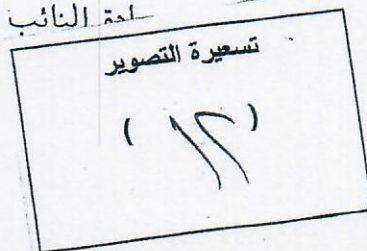 احة النائب
تسعيرة التصوير
( ١٢ )